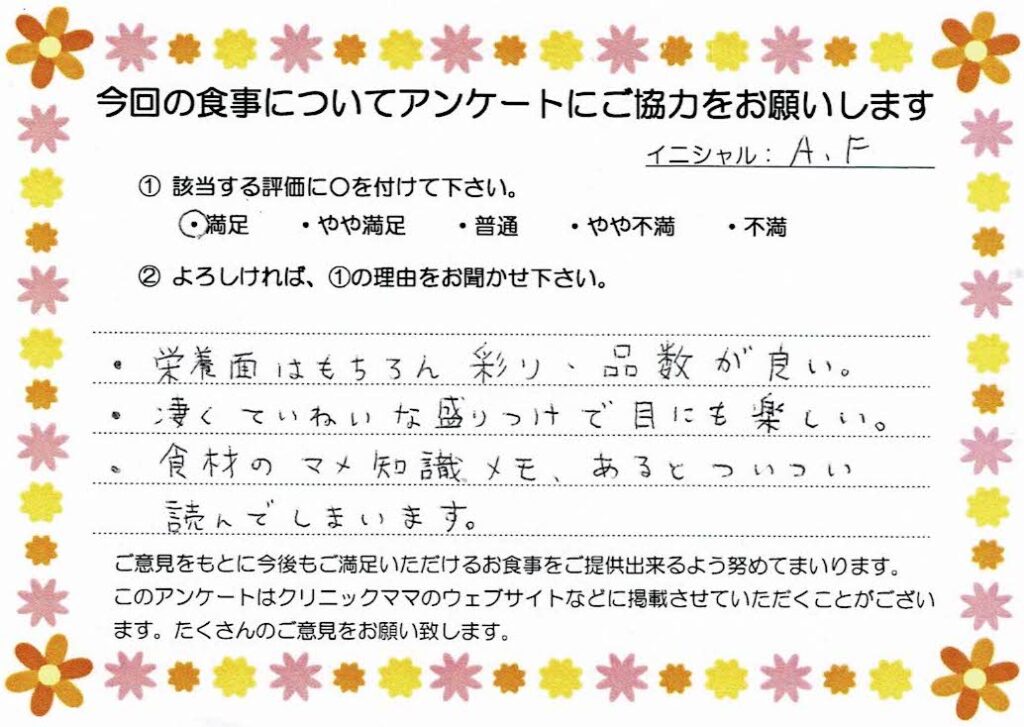 今回の食事についてアンケートにご協力をお願いします
イニシャル： A、F
① 該当する評価に〇を付けて下さい。
・満足 ・やや満足 ・普通 ・やや不満 ・不満
② よろしければ、①の理由をお聞かせ下さい。
・ 栄養面はもちろん 彩り、品数が良い。
・ 凄くていねいな盛りつけで目にも楽しい。
・ 食材のマメ知識メモ、あるとついつい
読んでしまいます。
ご意見をもとに今後もご満足いただけるお食事をご提供出来るよう努めてまいります。
このアンケートはクリニックママのウェブサイトなどに掲載させていただくことがござい
ます。たくさんのご意見をお願い致します。